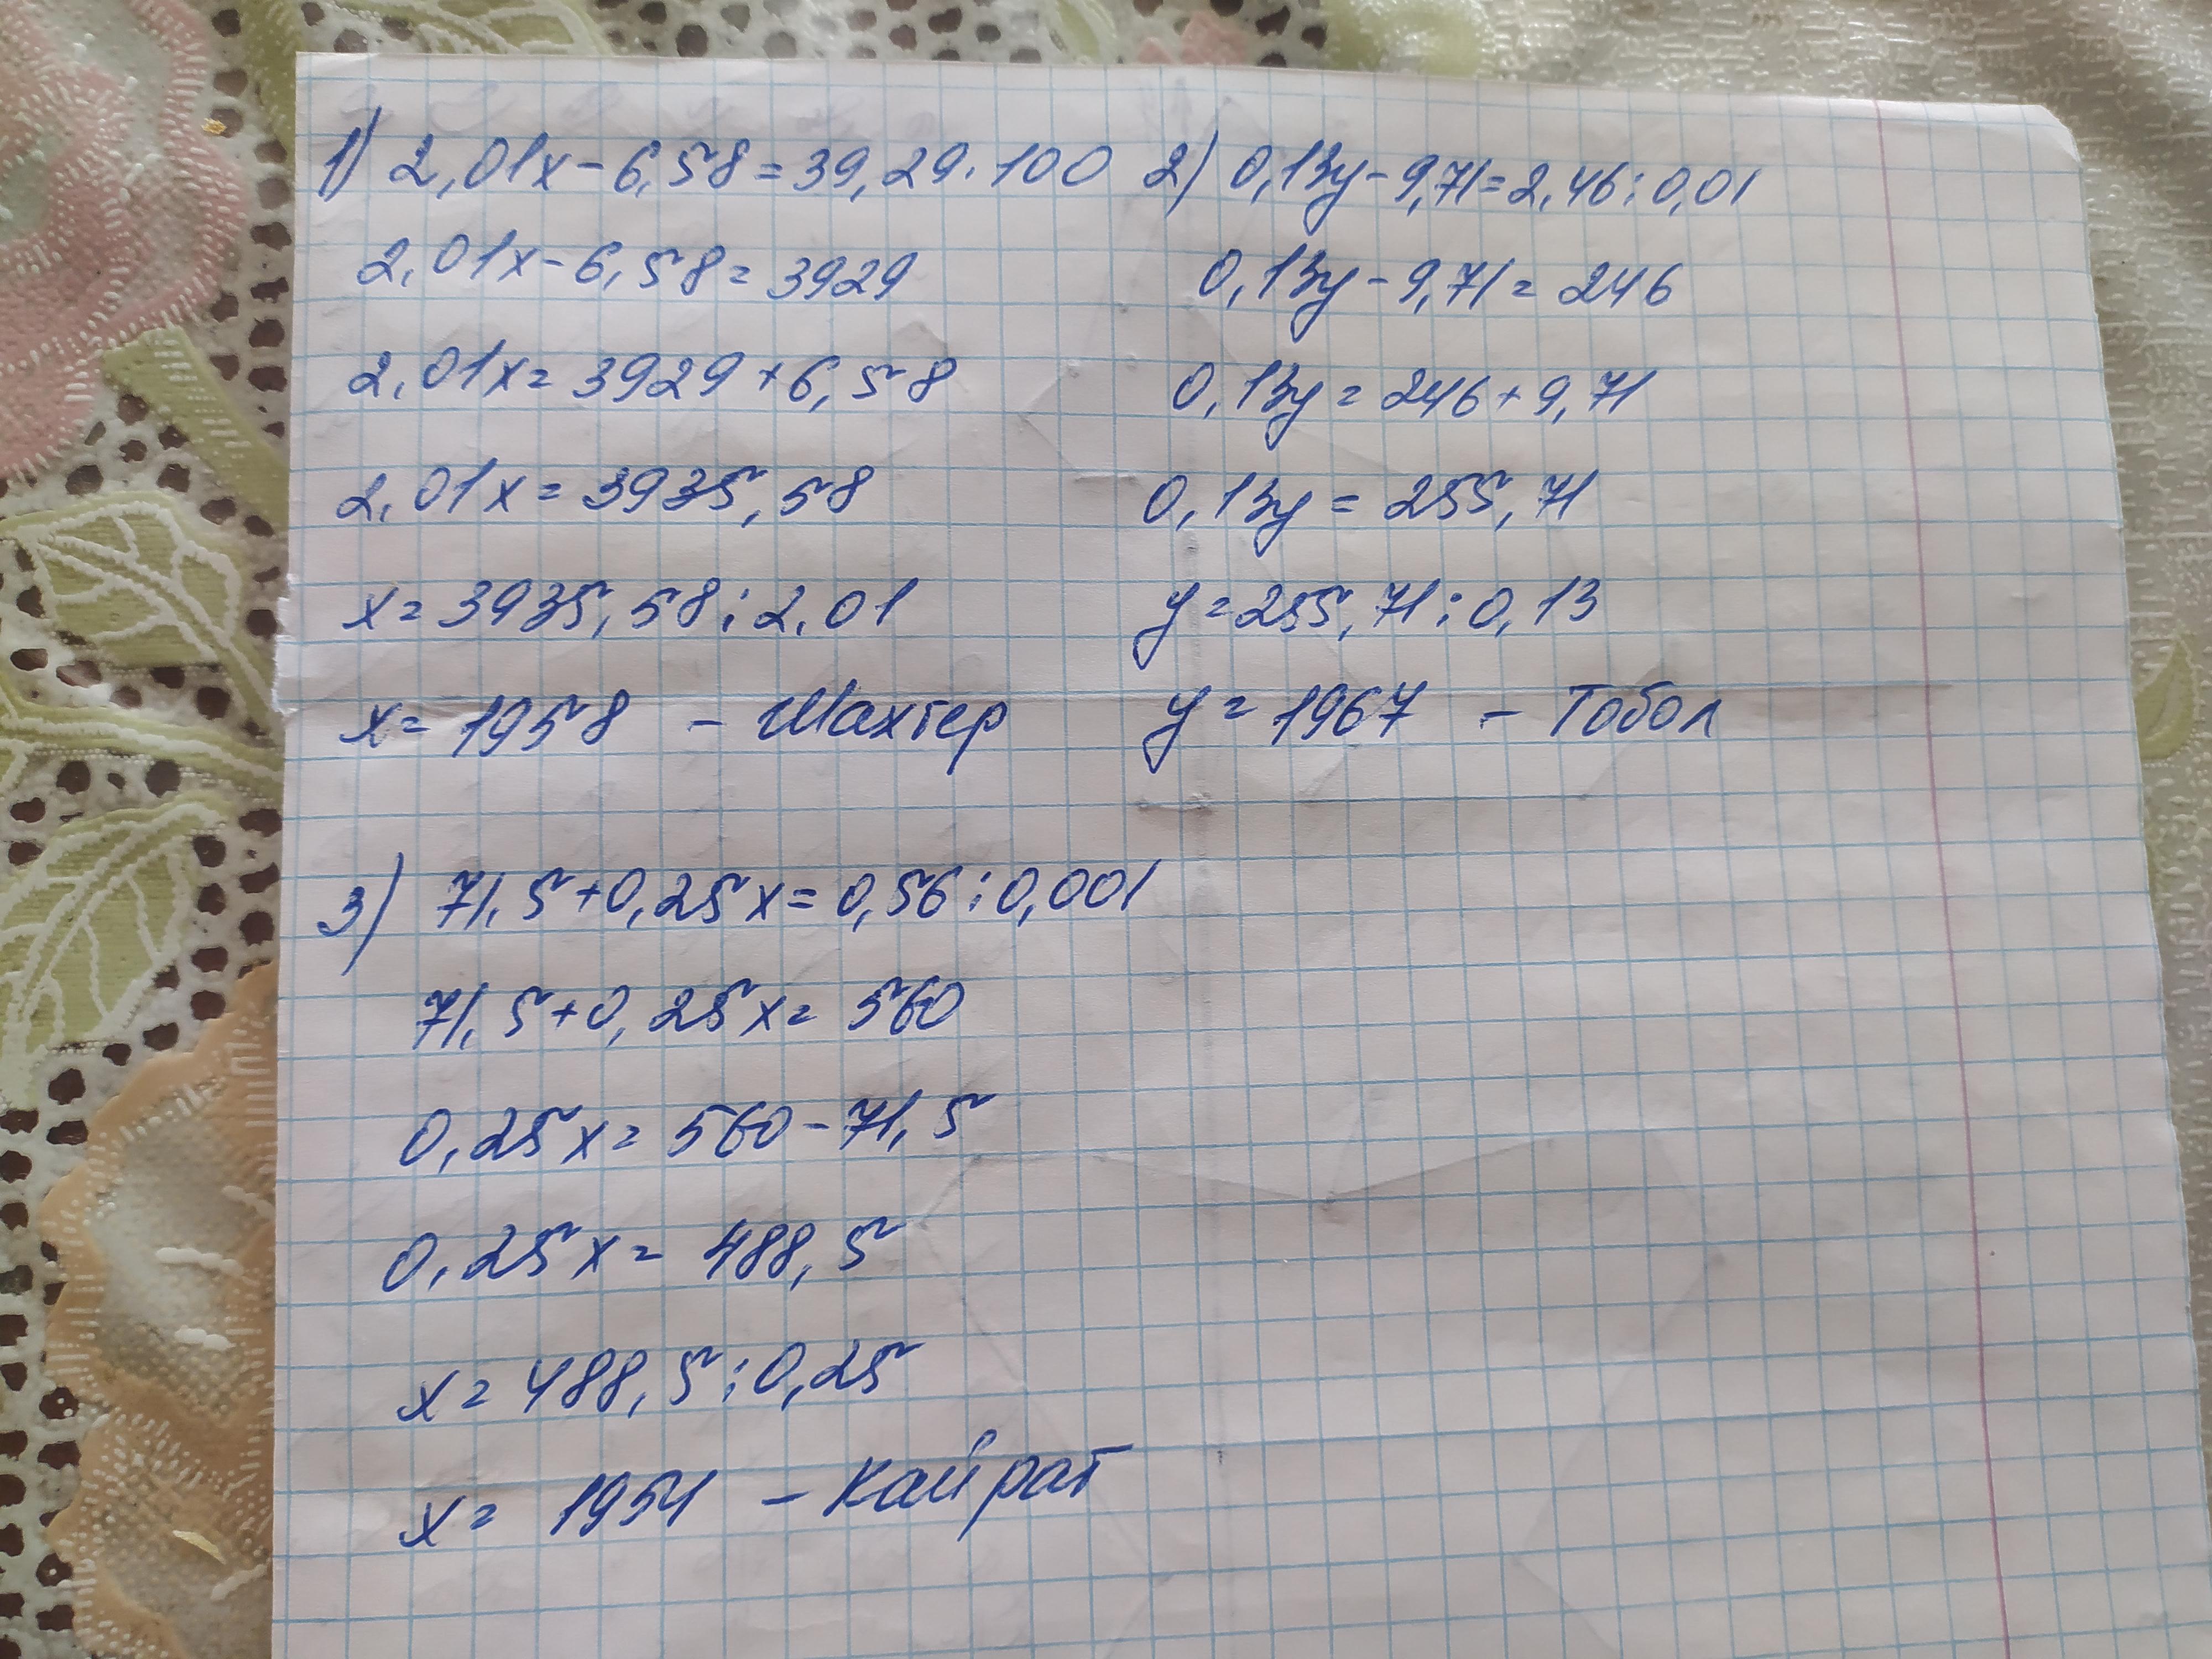 1) 2,01x - 6,58 = 39,29 · 100
2,01x - 6,58 = 3929
2,01x = 3929 + 6,58
2,01x = 3935,58
x = 3935,58 : 2,01
x = 1958 - Шахтер
2) 0,13y - 9,71 = 2,46 : 0,01
0,13y - 9,71 = 246
0,13y = 246 + 9,71
0,13y = 255,71
y = 255,71 : 0,13
y = 1967 - Тобол
3) 71,5 + 0,25x = 0,56 : 0,001
71,5 + 0,25x = 560
0,25x = 560 - 71,5
0,25x = 488,5
x = 488,5 : 0,25
x = 1954 - Кайрат